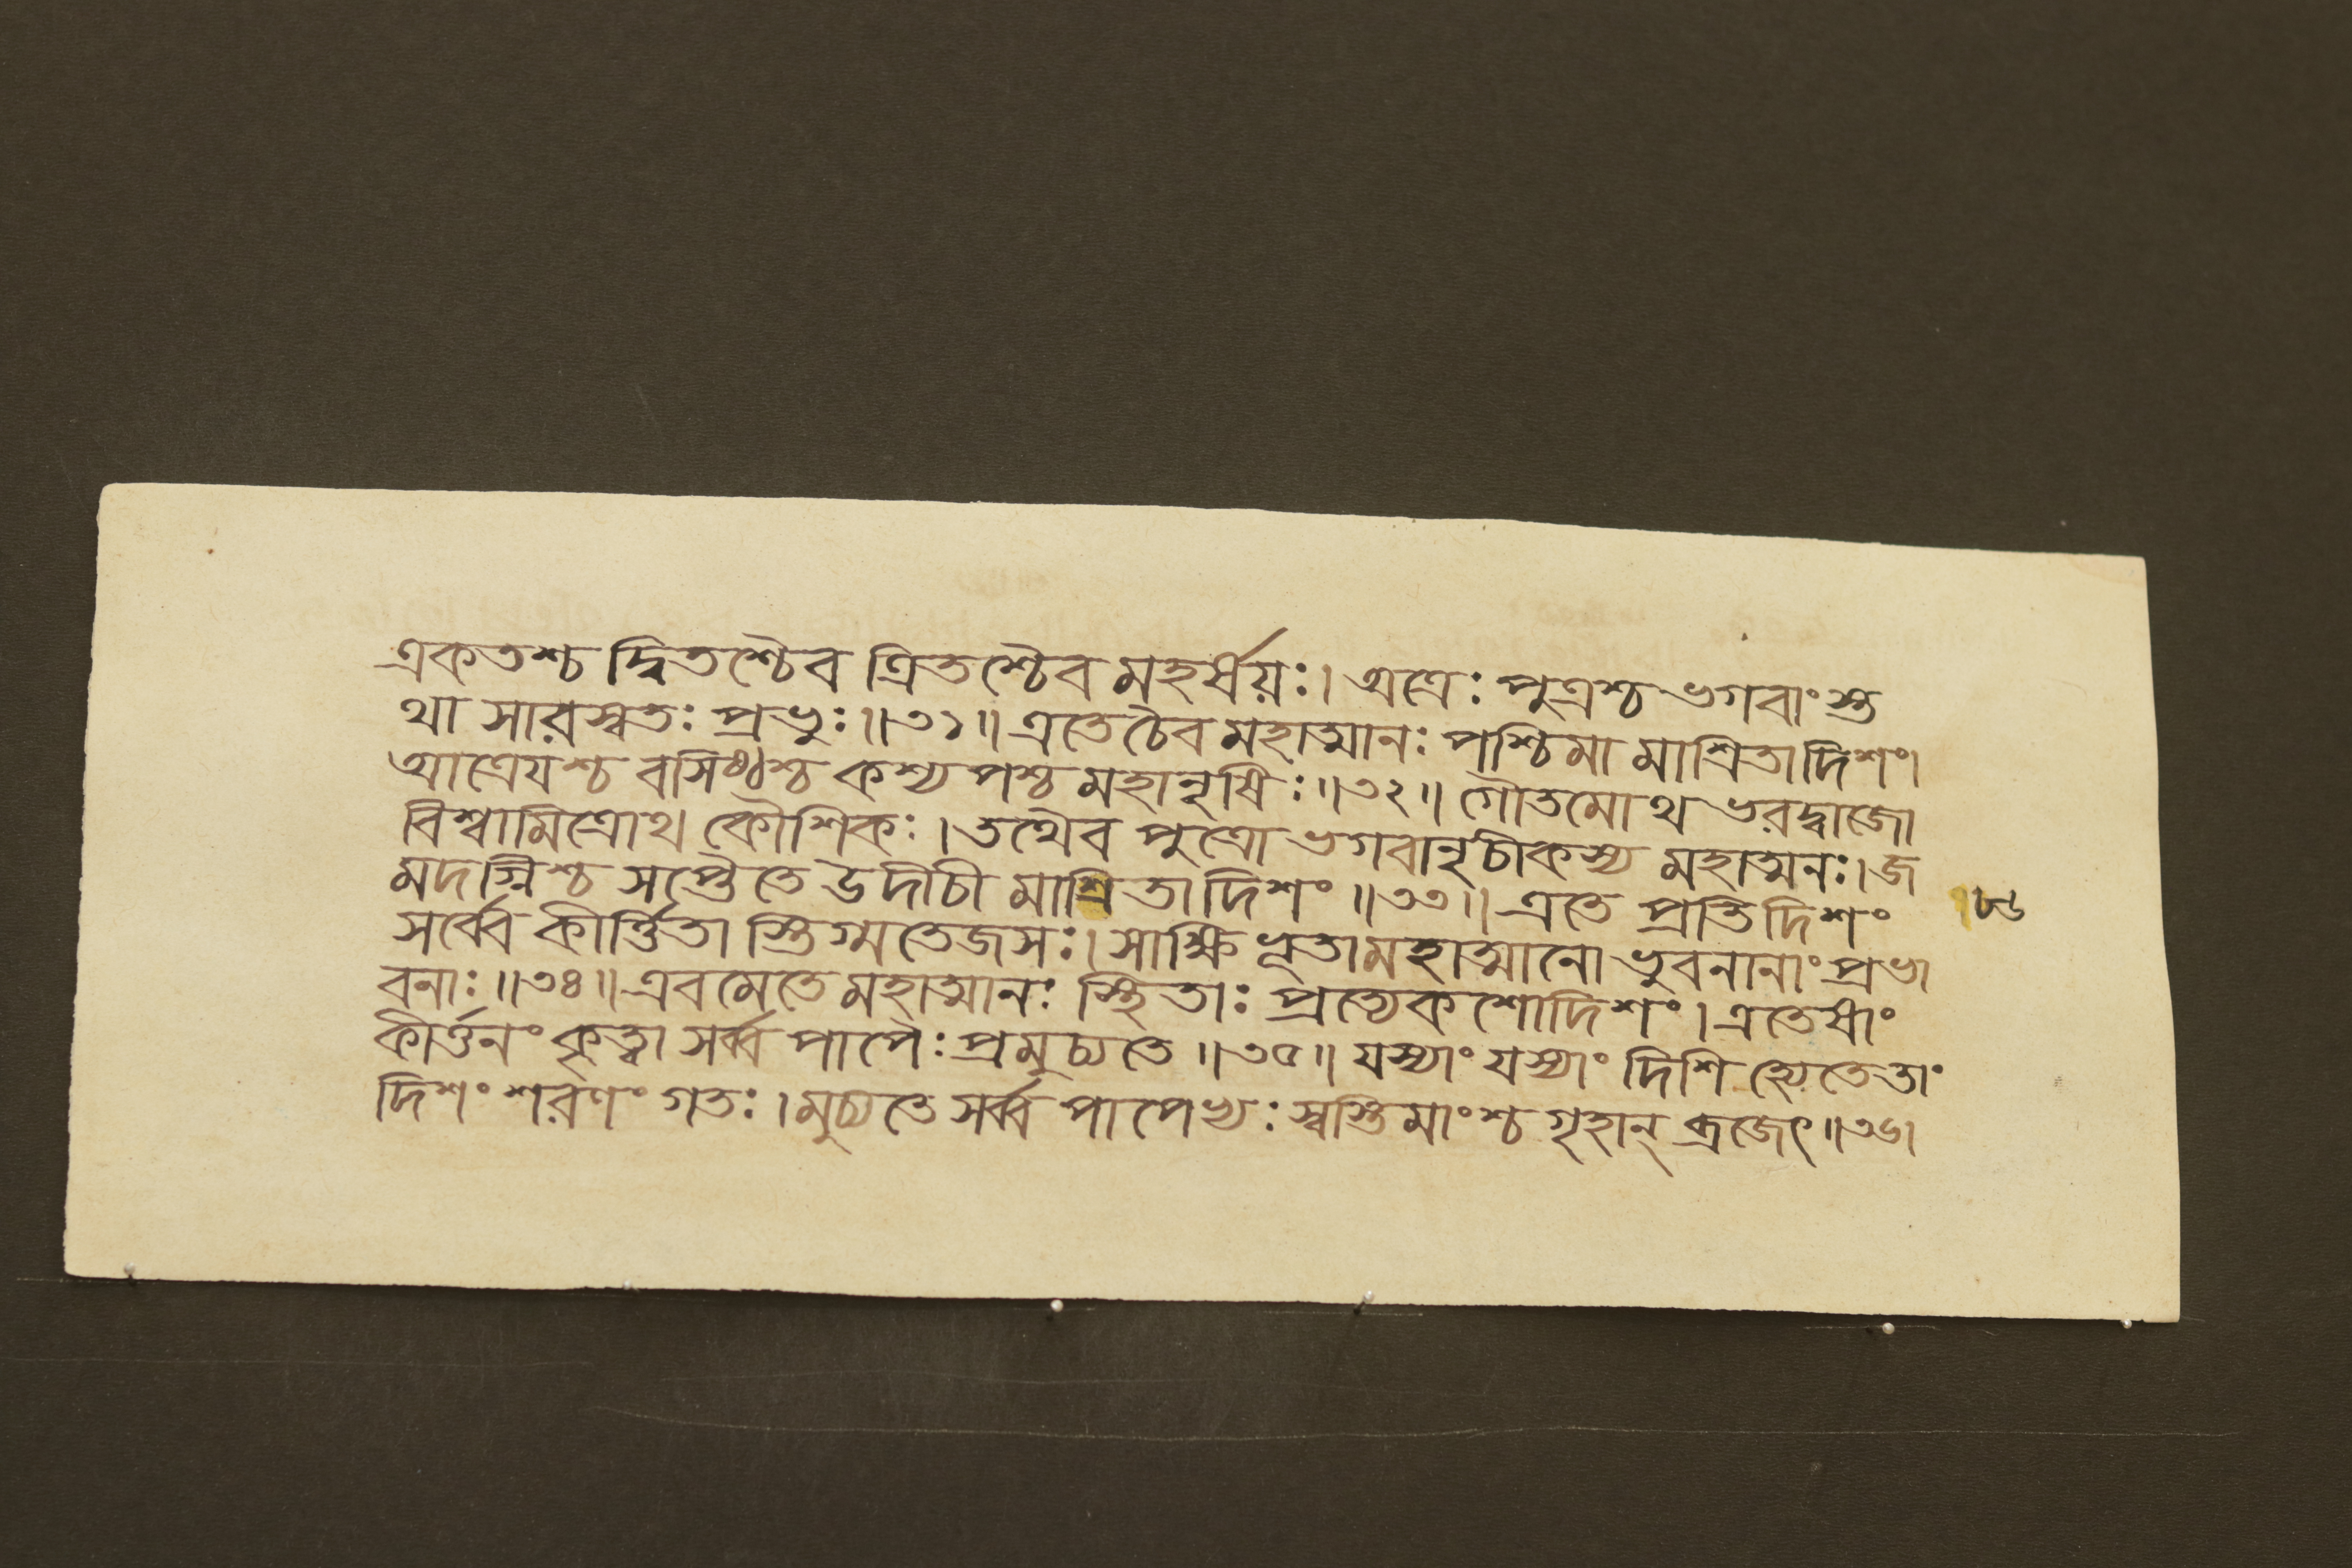 একতশ্চ দ্বিতশ্চৈব ত্রিতশ্চৈব মহর্ষয়ঃ। অত্রেঃ পুত্রশ্চ ভগবাংস্ত
থা সারস্বতঃ প্রভুঃ॥৩১॥ এতে চৈব মহাত্মানঃ পশ্চিমা মাশ্রিতা দিশং।
আত্রেযশ্চ বসিষ্ঠশ্চ কশ্যপশ্চ মহানৃষিঃ॥৩২॥ গৌতমোথ ভরদ্বাজো
বিশ্বামিত্রোথ কৌশিকঃ। তথৈব পুত্রো ভগবানৃচীকস্য মহাত্মনঃ। জ
মদগ্নিশ্চ সপ্তৈতে উদীচী মাশ্রিতা দিশং॥৩৩॥ এতে প্রতি দিশং
সর্ব্বে কীর্ত্তিতা স্তিগ্মতেজসঃ। সাক্ষিভূতা মহাত্মানো ভুবনানাং প্রভা
বনাঃ॥৩৪॥ এবমেতে মহাত্মানঃ স্থিতাঃ প্রত্যেকশো দিশং। এতেষাং
কীর্ত্তনং কৃত্বা সর্ব্ব পাপৈঃ প্রমুচ্যতে॥৩৫॥ যস্যাং যস্যাং দিশি হ্যেতে তাং
দিশং শরণং গতঃ। মুচ্যতে সর্ব্ব পাপেভ্যঃ স্বস্তিমাংশ্চ গৃহান্ ব্রজেৎ॥৩৬।